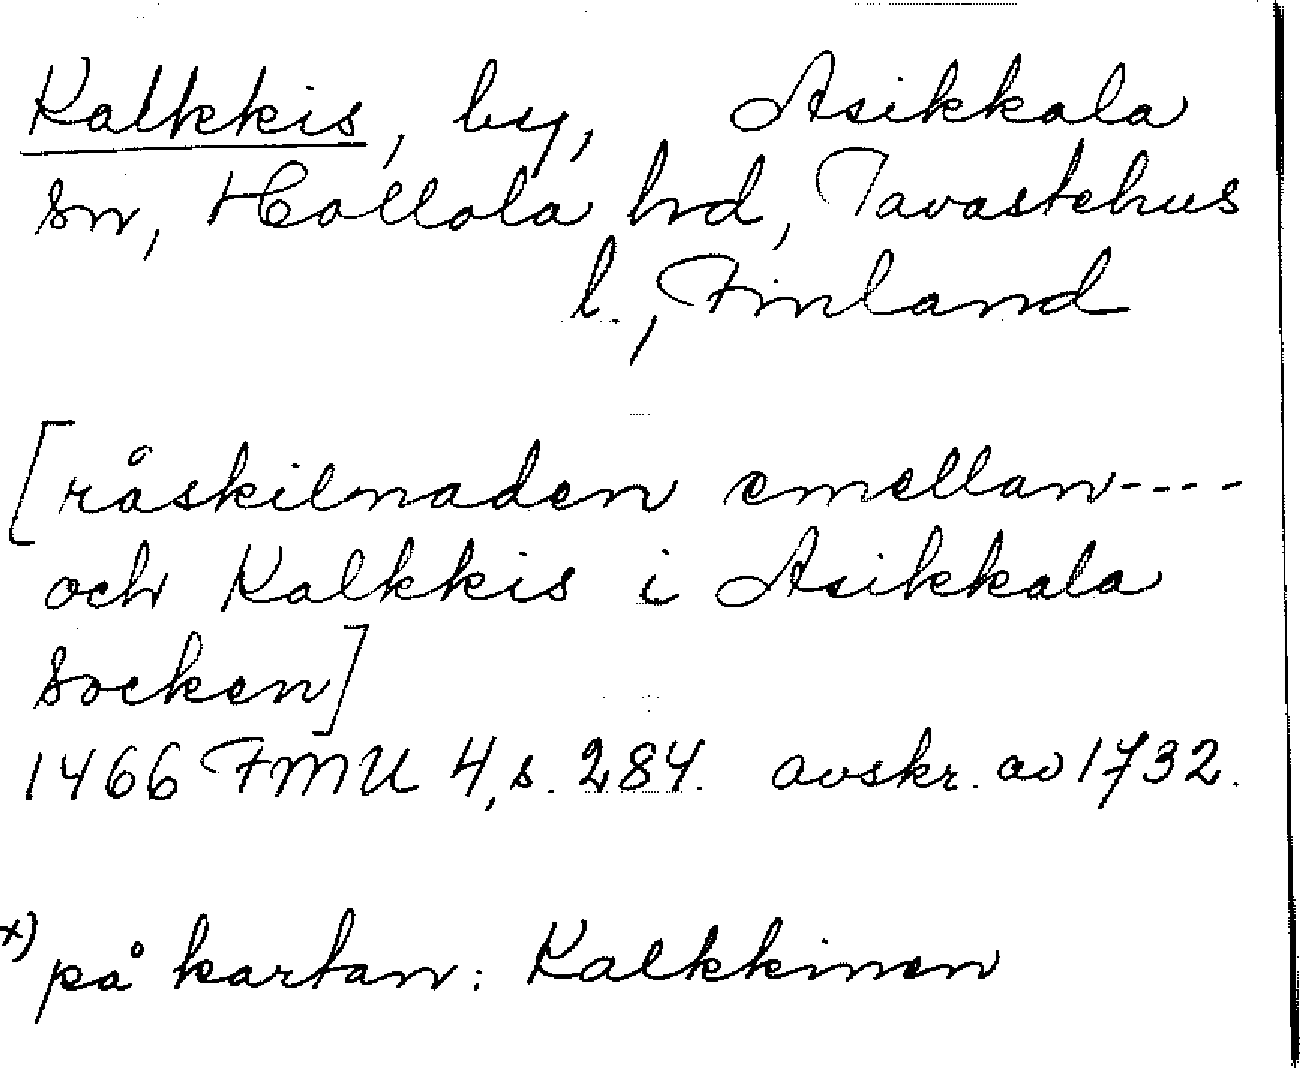 Kalkkis, by, Asikkala
sn, Hollola hrd, Tavastehus
l., Finland
[råskilnaden emellan----
och Kalkkis i Asikkala
socken]
1466 FMU 4, s. 284. avskr. av 1732.
x) på kartan: Kalkkinen